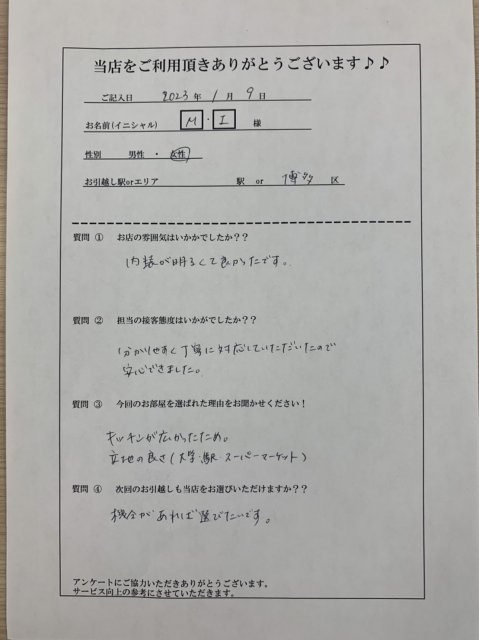 当店をご利用頂きありがとうございます♪♪
ご記入日 2023年 1月 9日
お名前(イニシャル) M・I 様
性別 男性 ・ 女性
お引越し駅orエリア 駅 or 博多 区
質問 ① お店の雰囲気はいかがでしたか??
内装が明るくて良かったです。
質問 ② 担当の接客態度はいかがでしたか??
分かりやすく丁寧に対応していただいたので
安心できました。
質問 ③ 今回のお部屋を選ばれた理由をお聞かせください!
キッチンが広かったため。
立地の良さ(大学・駅・スーパーマーケット)
質問 ④ 次回のお引越しも当店をお選びいただけますか??
機会があれば選びたいです。
アンケートにご協力いただきありがとうございます。
サービス向上の参考にさせていただきます。